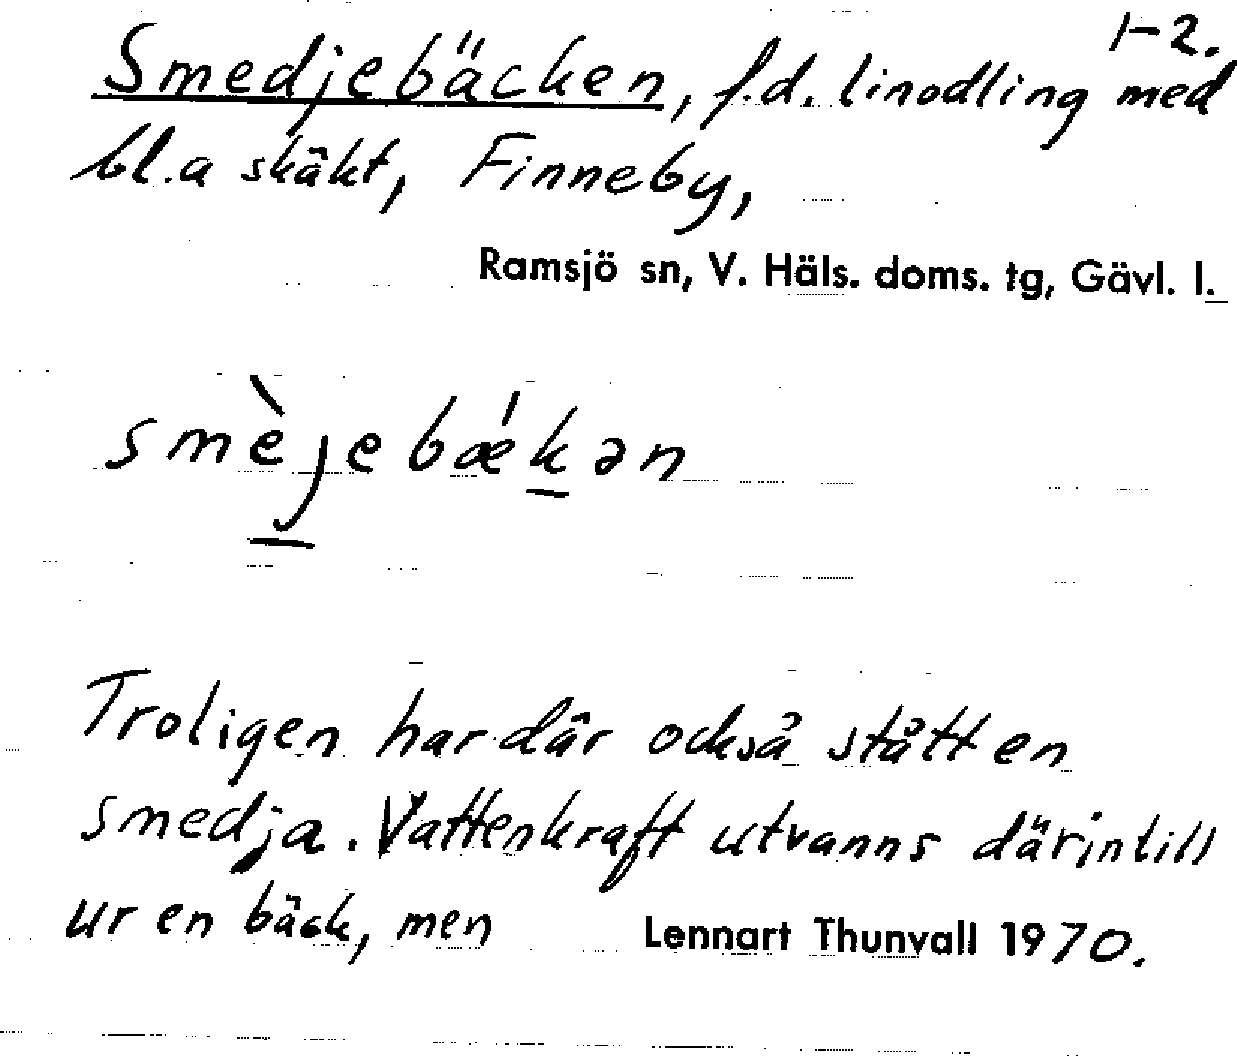 1-2.
Smedjebäcken, f.d. linodling med
bl.a skäkt, Finneby,
Ramsjö sn, V. Häls. doms. tg, Gävl. l.
smèjebǽkən
Troligen har där också stått en
smedja. Vattenkraft utvanns därintill
ur en bäck, men
Lennart Thunvall 1970.